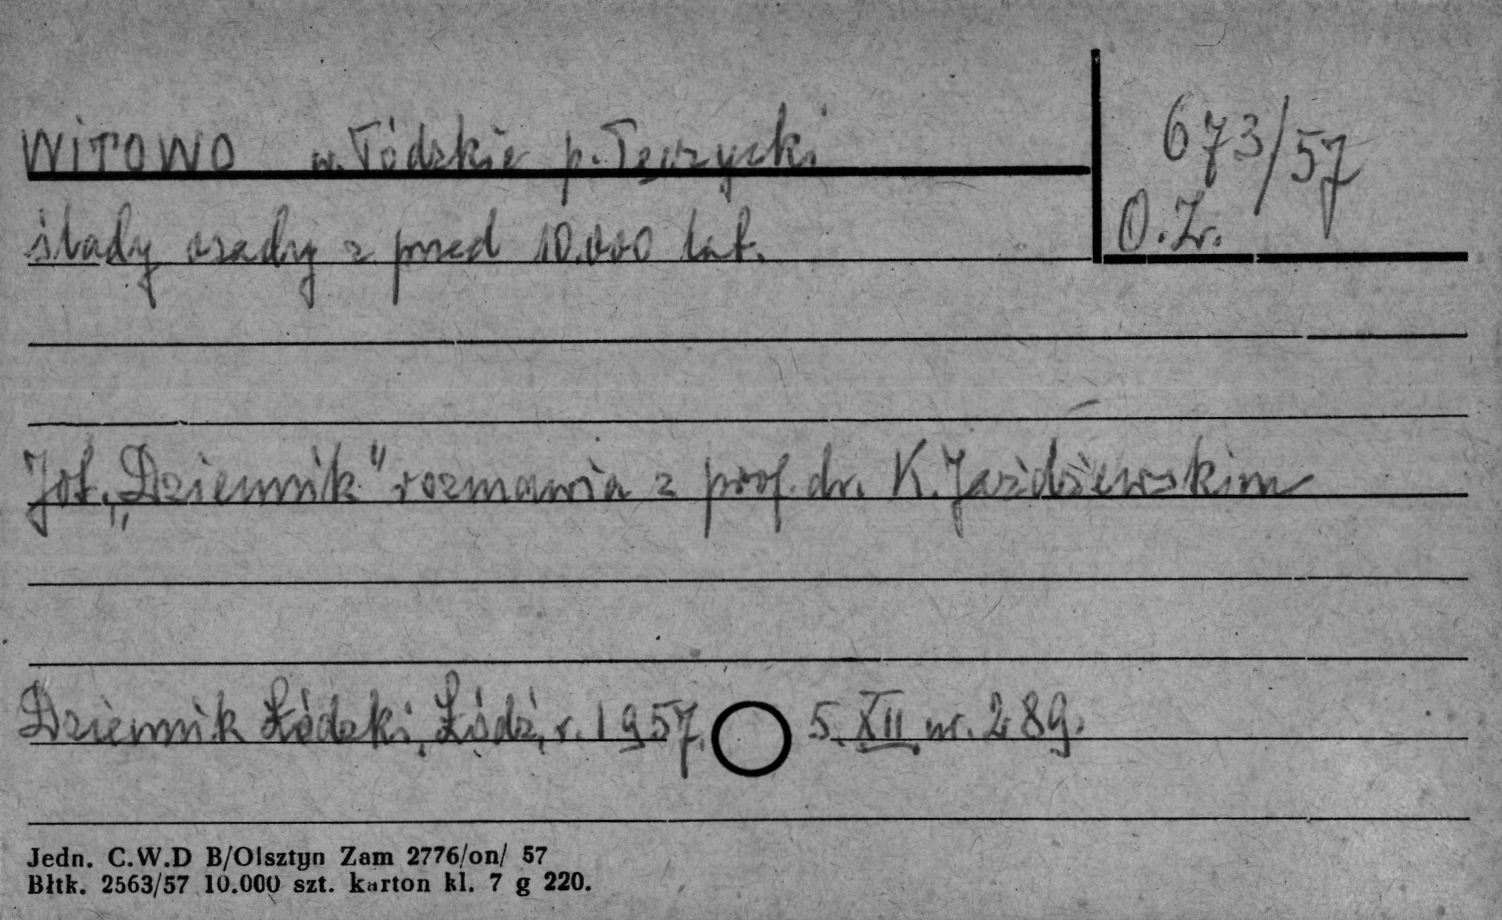 WITOWO w. Łódzkie p. Łęczycki
673/57
O.Zr.
ślady osady z przed 10.000 lat.
Jot. „Dziennik" rozmawia z prof. dr. K. Jażdżewskim
Dziennik Łódzki, Łódź, r. 1957, 5. XII nr. 289.
Jedn. C.W.D B/Olsztyn Zam 2776/on/ 57
Błtk. 2563/57 10.000 szt. karton kl. 7 g 220.